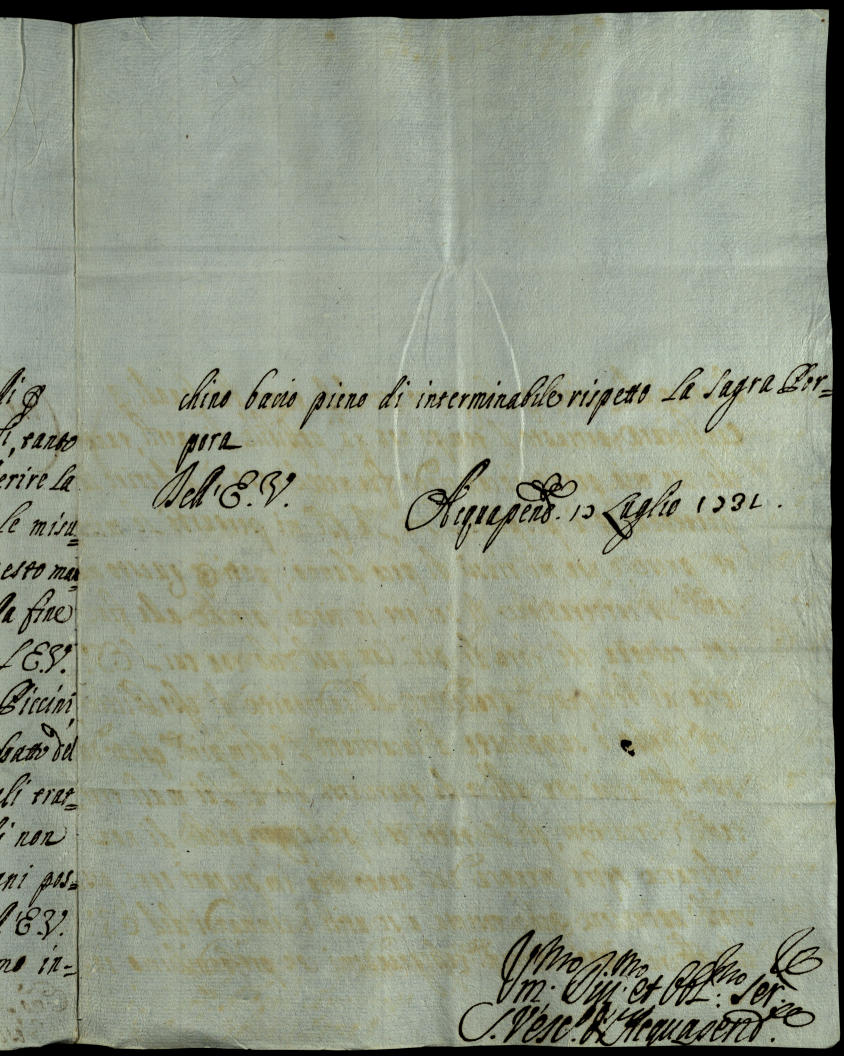 di p
i, tanto
erire la
le misu=
esto man
la fine
L'E.V.
Piccini
del
li trat=
i non
ni pos=
l'E.V.
mo in=
chino bacio pieno di interminabile rispetto la Sagra Por=
pora
Dell'E.V.
Acquapend. Luglio 1731.
Um.mo Div.mo et Obl.mo Ser.re
Vesc.o d'Acquapend.